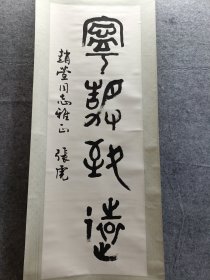 寧靜致遠
趙瑩同志雅正 張虎